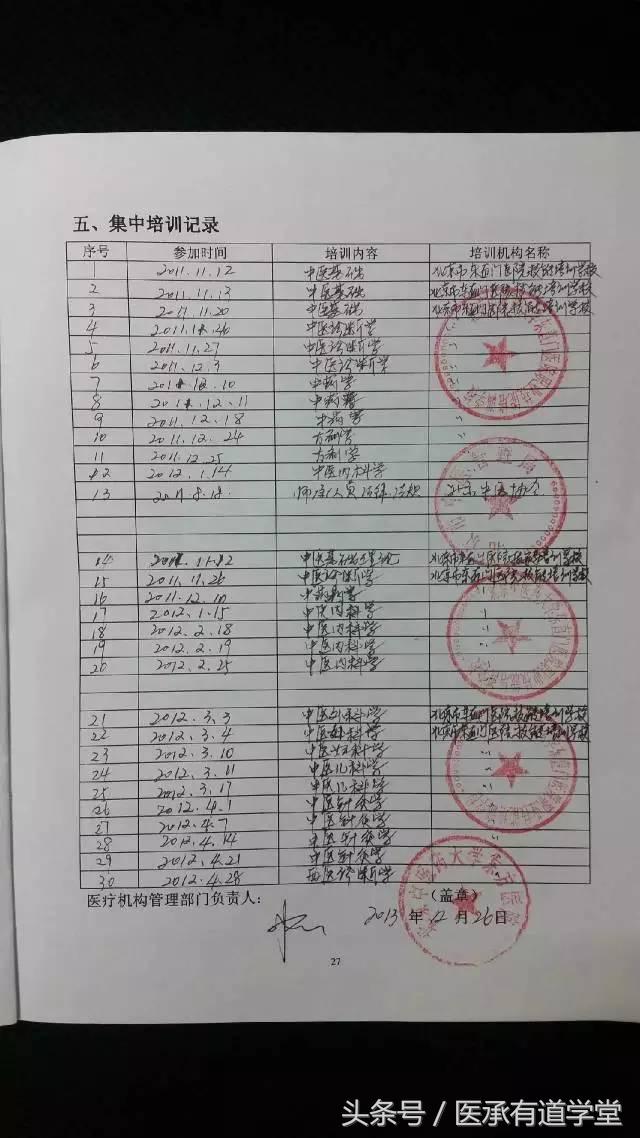 五、集中培训记录
序号 参加时间 培训内容 培训机构名称
1 2011.11.12 中医基础 北京市东直门医院技能培训学校
2 2011.11.13 中医基础 北京市东直门医院技能培训学校
3 2011.11.20 中医基础 北京市东直门医院技能培训学校
4 中医诊断学
5 2011.11.27 中医诊断学
6 2011.12.3 中医诊断学
7 中药学
8 中药学
9 2011.12.18 中药学 〃
10 2011.12.24 方剂学 〃
11 2011.12.25 方剂学
12 2012.1.14 中医内科学
13 师承人员
14 北京市东直门医院技能培训学校
15 2011.11.26 中医诊断学 北京市东直门医院技能培训学校
16 2011.12.10
17 2012.1.15 中医内科学
18 2012.2.18 中医内科学
19 2012.2.19 中医内科学 〃
20 2012.2.25 中医内科学
21 2012.3.3 中医外科学 北京市东直门医院技能培训学校
22 2012.3.4 北京市东直门医院技能培训学校
23 2012.3.10
24 2012.3.11 中医儿科学
25 2012.3.17 中医儿科学
26 2012.4.1 中医针灸学
27 2012.4.7 中医针灸学
28 2012.4.14 中医针灸学 〃
29 2012.4.21 中医针灸学
30 2012.4.28 西医诊断学
医疗机构管理部门负责人： （盖章）
2013年12月26日
27
头条号/医承有道学堂